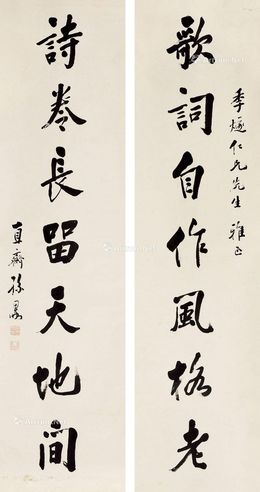 季煖仁兄先生雅正
歌詞自作風格老
詩卷長留天地間
直齋孫墨